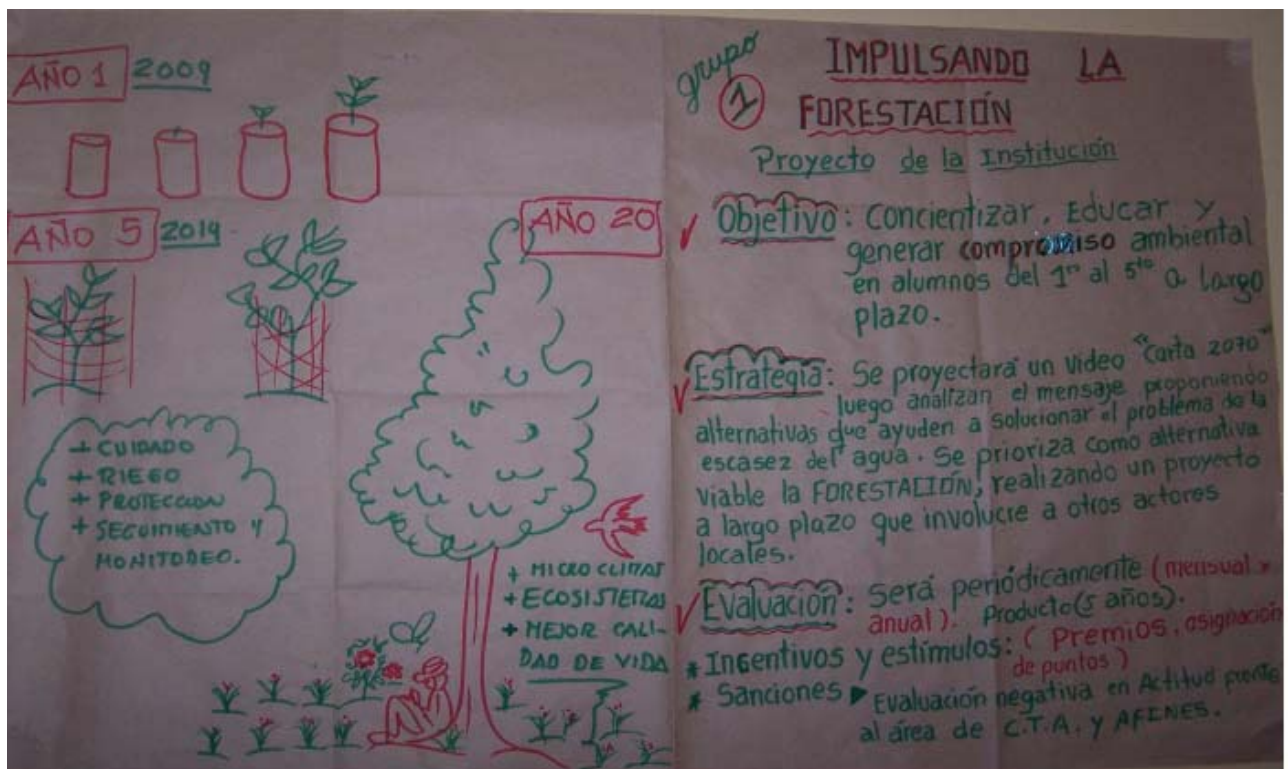 AÑO 1 2009
AÑO 5 2014
AÑO 20
+ CUIDADO
+ RIEGO
+ PROTECCION
+ SEGUIMIENTO Y
MONITOREO.
+ MICRO CLIMAS
+ ECOSISTEMAS
+ MEJOR CALI-
DAD DE VIDA
grupo
1
IMPULSANDO LA
FORESTACIÓN
Proyecto de la Institución
Objetivo: Concientizar, Educar y
generar compromiso ambiental
en alumnos del 1ro al 5to a largo
plazo.
Estrategia: Se proyectará un video "Carta 2070"
luego analizan el mensaje proponiendo
alternativas que ayuden a solucionar el problema de la
escasez del agua. Se prioriza como alternativa
viable la FORESTACIÓN, realizando un proyecto
a largo plazo que involucre a otros actores
locales.
Evaluación: Será periódicamente (mensual y
anual). Producto (5 años).
* Incentivos y estímulos: (Premios, asignación
de puntos)
* Sanciones ▶ Evaluación negativa en Actitud frente
al área de C.T.A. y AFINES.